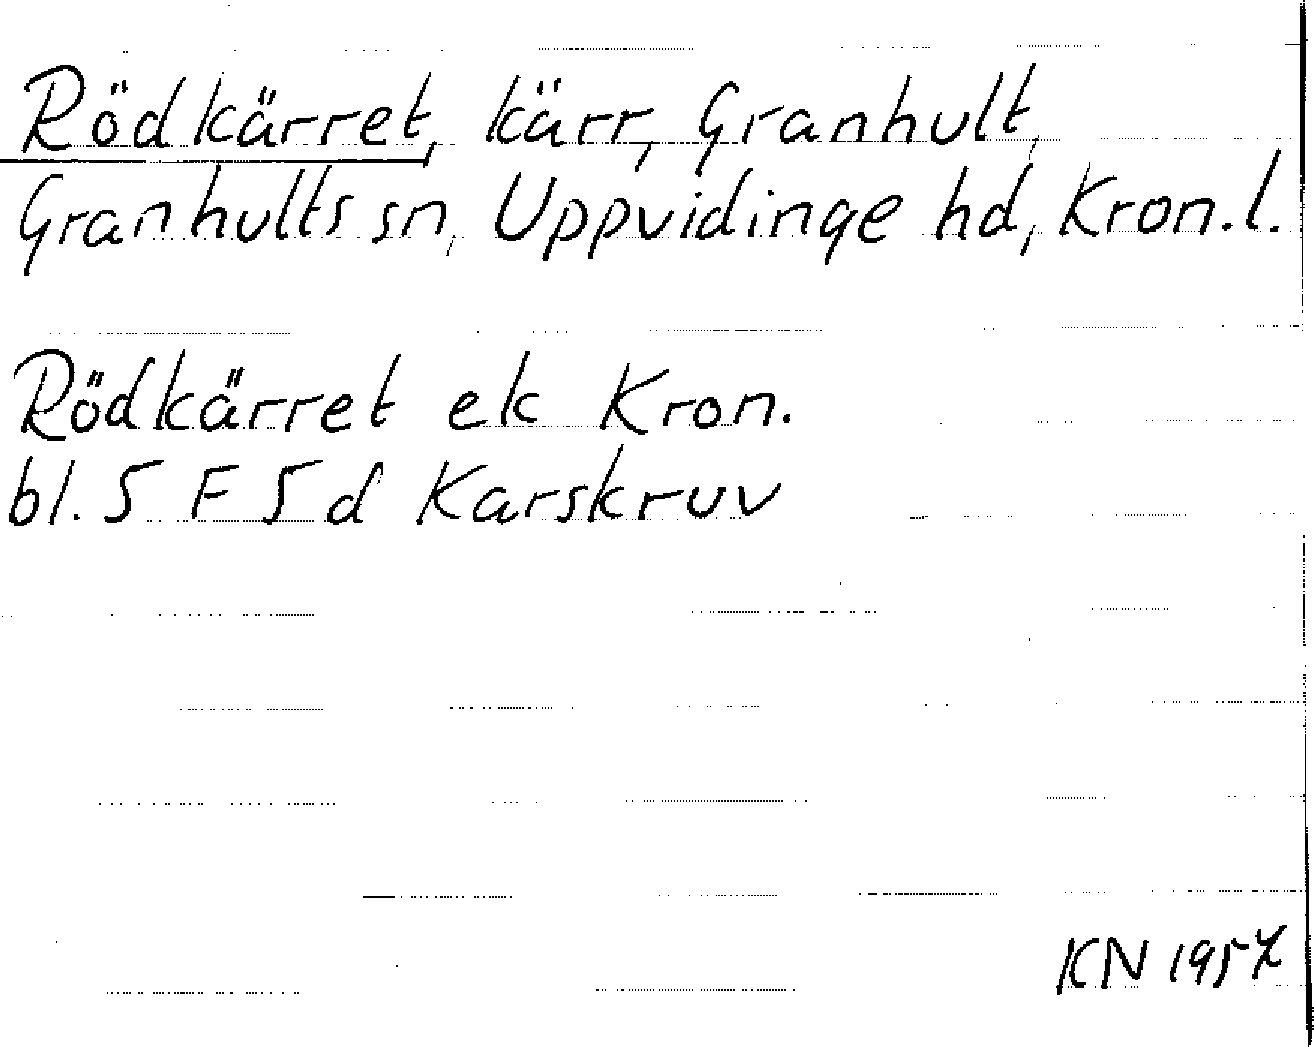 Rödkärret, kärr, Granhult,
Granhults sn, Uppvidinge hd, Kron.l.
Rödkärret ek Kron.
bl. 5 F 5 d Karskruv
KN 1957